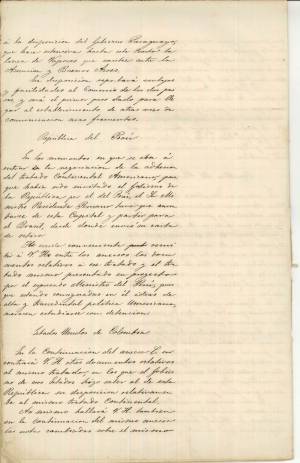 à la disposicion del Gobierno Paraguayo,
que han estensiva hasta este Puerto la
linea de Vapores que existe entre la
Asuncion y Buenos Aires.
La disposicion reportará ventajas
y facilidades al Comercio de los dos pai
ses, y será el primer paso dado para lle
gar al establecimiento de otras vias de
comunicacion mas frecuentes.
República del Perú
En los momentos en que se iba á
entrar en la negociacion de la adhesion
del tratado Continental Americano, por
que habia sido invitado el Gobierno de
la República por el del Perú, el Sr. Mi
nistro Residente Peruano tuvo que ausen
tarse de esta Capital y partir para
el Brasil, desde donde envió su carta
de retiro.
He creido conveniente remi
tir á V. H. entre los anexos los docu
mentos relativos á ese tratado y el tra
tado mismo presentado en proyecto
por el espresado Ministro del Perú, por
que estando consignadas en él ideas de
alta y trascendental política Americana,
merecen estudiarse con detencion.
Estados Unidos de Colombia
En la Continuacion del anexo C. en
contrará V. H. otros documentos relativos
al mismo tratado, en los que el Gobier
no de esos Estados hizo saber al de esta
República su disposicion relativamen
te al mismo tratado Continental.
Asi mismo hallará V. H. tambien
en la continuacion del mismo anexo
las notas cambiadas sobre el mismo